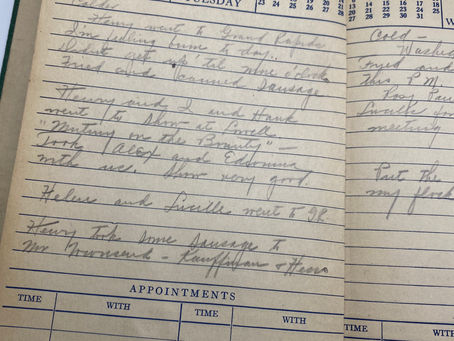 TUESDAY
23 24 25 26
Colder
Henry went to Grand Rapids
I'm feeling bum to day..
Didnt get up 'til nine o'clock
Fried and canned sausage
Henry and I and Hank
went to show at Lowell
"Mutiny on the Bounty" —
Took Alex and
with us. Show very good.
Helen and Lucille went to GR.
Henry took some sausage to
Mr Townsend - Kauffman & Hess
APPOINTMENTS
TIME WITH TIME WITH
20 21 22 23 24
27 28 29 30 31
W
Cold —
Washed
Fried and
this P.M.
Lucille
meeting
Put the
my flock
TIME